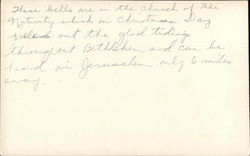 These bells are in the Church of the
Nativity which on Christmas Day
out the glad tidings
throughout Bethlehem and can be
heard in Jerusalem only 6 miles
away.